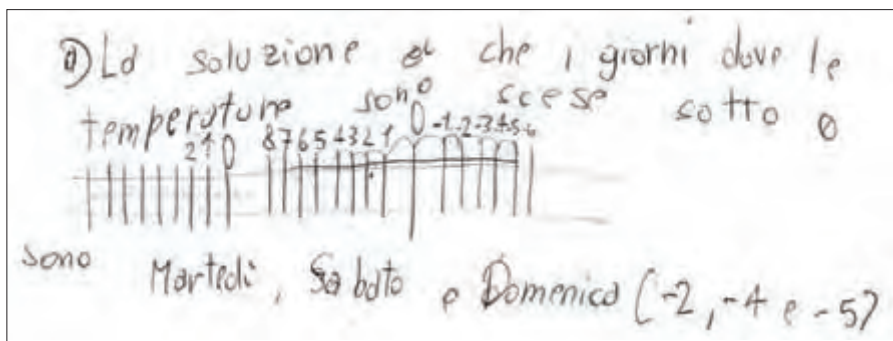 a) La soluzione è che i giorni dove le
temperature sono scese sotto 0
2 1 0 8 7 6 5 4 3 2 1 0 -1 -2 -3 -4 -5 -6
sono Martedì, Sabato e Domenica (-2, -4 e -5)